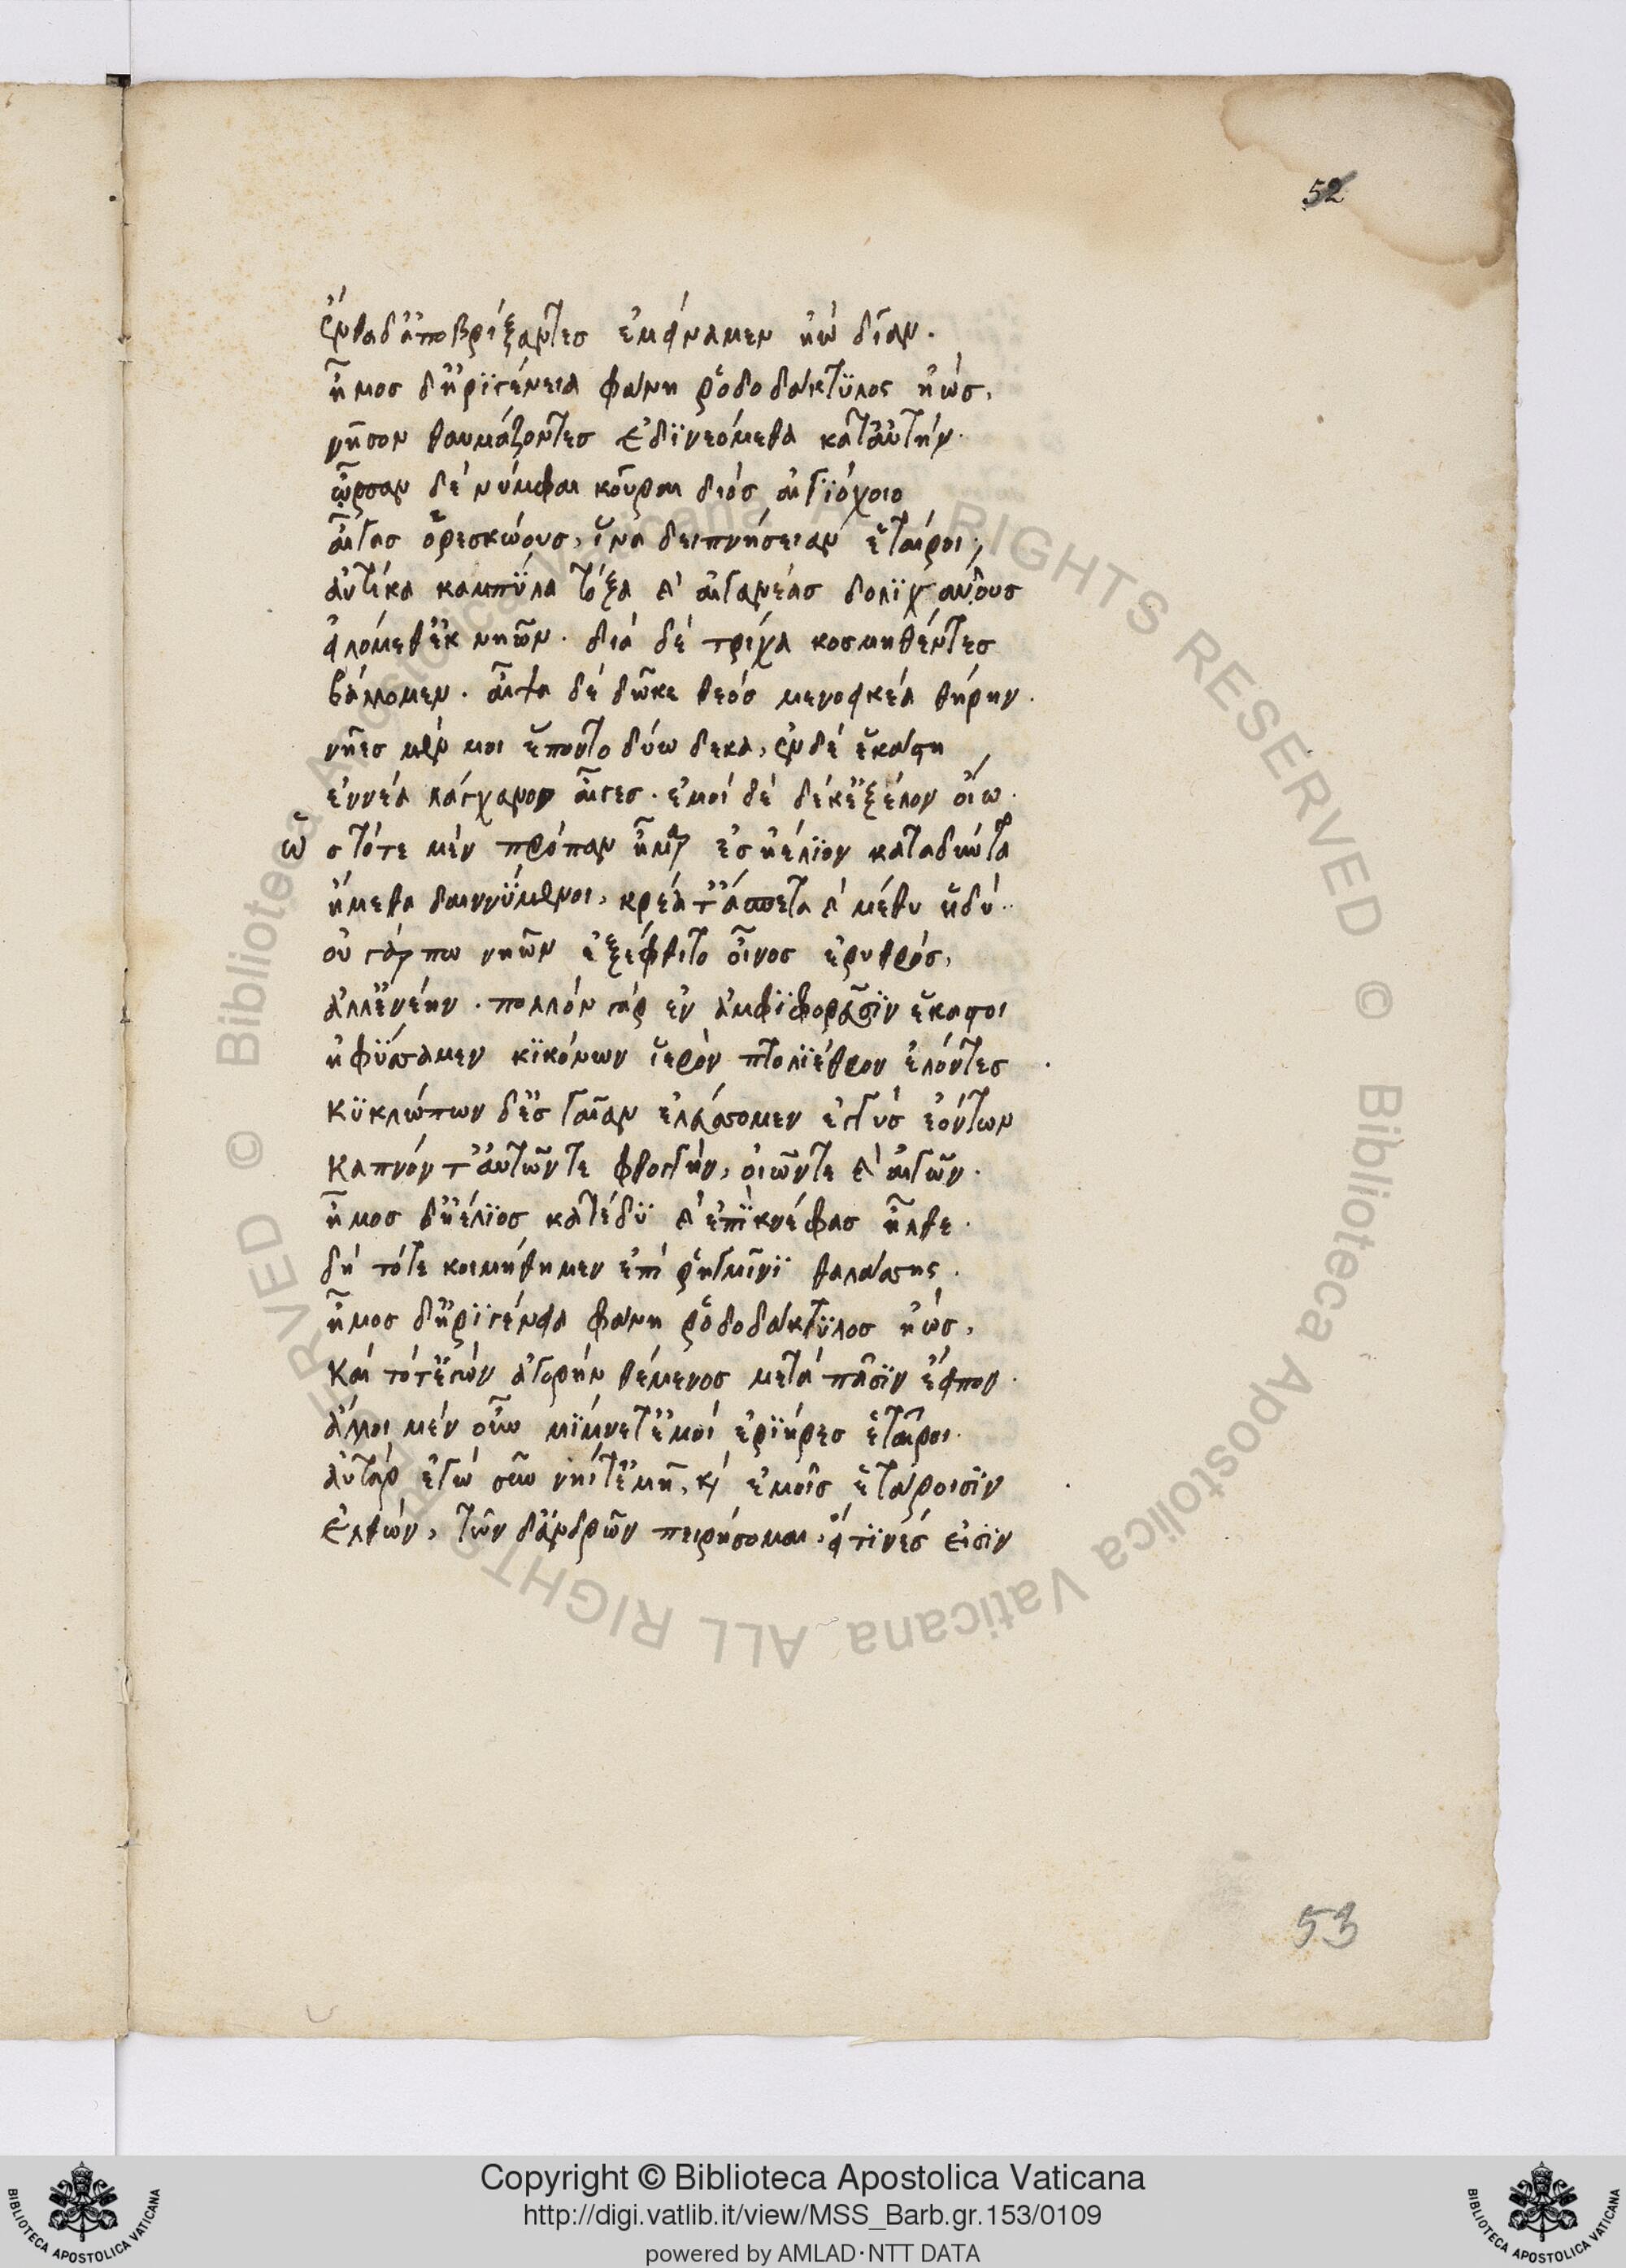 52
ἔνθα δ' ἀποβρίξαντες ἐμείναμεν ἠῶ δῖαν.
ἦμος δ' ἠρϊγένεια φάνη ῥοδοδάκτϋλος ἠώς,
νῆσον θαυμάζοντες ἐδϊνεόμεθα κατ' αὐτήν.
ὦρσαν δὲ νύμφαι κοῦραι διὸς αἰγϊόχοιο
αἶγας ὀρεσκώους, ἵνα δειπνήσειαν ἑταῖροι,
αὐτίκα καμπϋλα τόξα καὶ αἰγανέας δολϊχαύλους
εἱλόμεθ' ἐκ νηῶν. διὰ δὲ τρίχα κοσμηθέντες
βάλλομεν. αἶψα δὲ δῶκε θεὸς μενοεικέα θήρην.
νῆες μέν μοι ἕποντο δύω δεκα, ἐν δὲ ἑκάστη
ἐννέα λάγχανον αἶγες. ἐμοὶ δὲ δέκ' ἔξελον οἴω.
ὣ ς τότε μὲν πρόπαν ἦμαρ ἐς ἠέλϊον καταδύντα
ἥμεθα δαινϋμενοι, κρέα τ' ἄσπετα καὶ μέθυ ἡδύ.
οὐ γάρ πω νηῶν ἐξέφθιτο οἶνος ἐρυθρός,
ἀλλ' ἐνέην. πολλὸν γὰρ ἐν ἀμφϊφορεῦσϊν ἕκαστοι
ἠφϋσαμεν κϊκόνων ἱερὸν πτολϊέθρον ἑλόντες
κϋκλώπων δ' ἐς γαῖαν ἐλεύσσομεν ἐγγὺς ἐόντων
καπνόν τ' αὐτῶν τε φθογγὴν, οἰῶν τε καὶ αἰγῶν.
ἦμος δ' ἠέλϊος κατέδϋ καὶ ἐπὶ κνέφας ἦλθε.
δὴ τότε κοιμήθημεν ἐπὶ ῥηγμῖνϊ θαλάσσης.
ἦμος δ' ἠρϊγένεια φάνη ῥοδοδάκτϋλος ἠώς,
καὶ τότ' ἐγὼν ἀγορὴν θέμενος μετὰ πᾶσϊν ἔειπον.
ἄλλοι μὲν νῦν μϊμνετ' ἐμοὶ ἐρϊηρες ἑταῖροι.
αὐτὰρ ἐγὼ σὺν νηΐ τ' ἐμῇ, καὶ ἐμοῖς ἑτάροισϊν
ἐλθὼν, τῶν δ' ἀνδρῶν πειρήσομαι, οἵ τϊνές εἰσϊν
53
Copyright © Biblioteca Apostolica Vaticana
http://digi.vatlib.it/view/MSS_Barb.gr.153/0109
powered by AMLAD·NTT DATA
BIBLIOTECA APOSTOLICA VATICANA
BIBLIOTECA APOSTOLICA VATICANA
© Biblioteca Apostolica Vaticana ALL RIGHTS RESERVED © Biblioteca Apostolica Vaticana ALL RIGHTS RESERVED